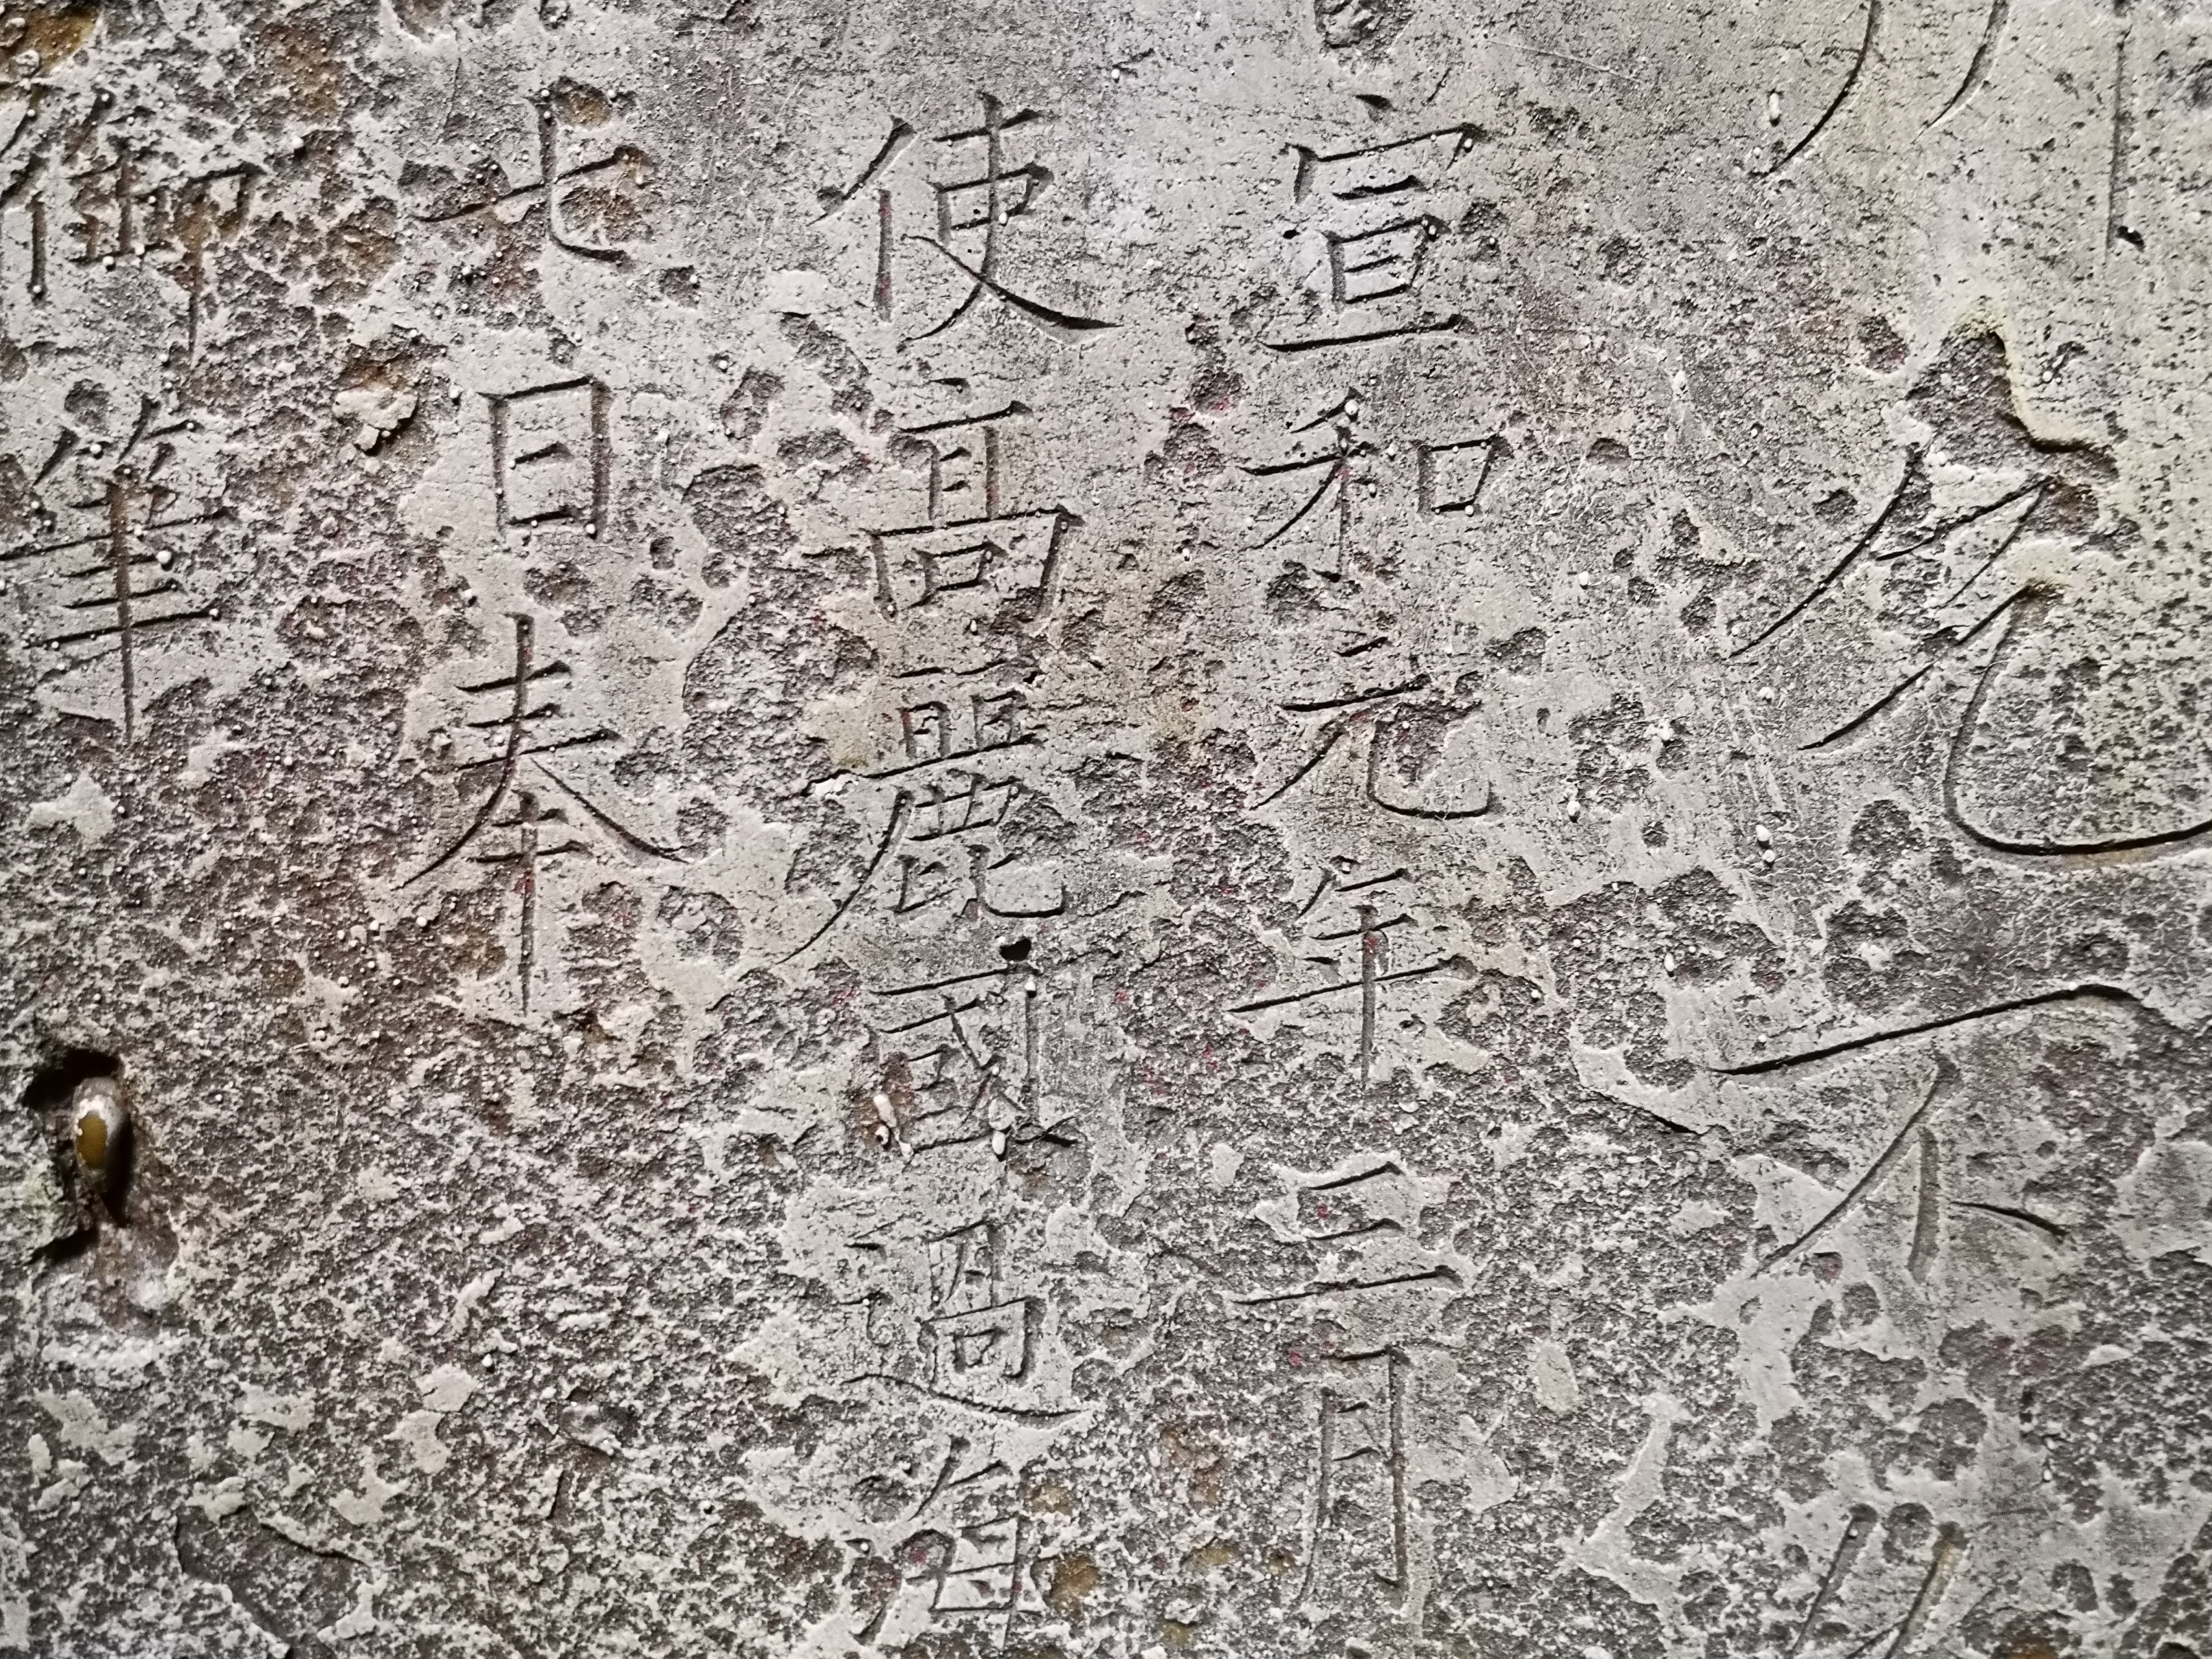 宣和元年三月
使高麗國過海
七日奉
御筆